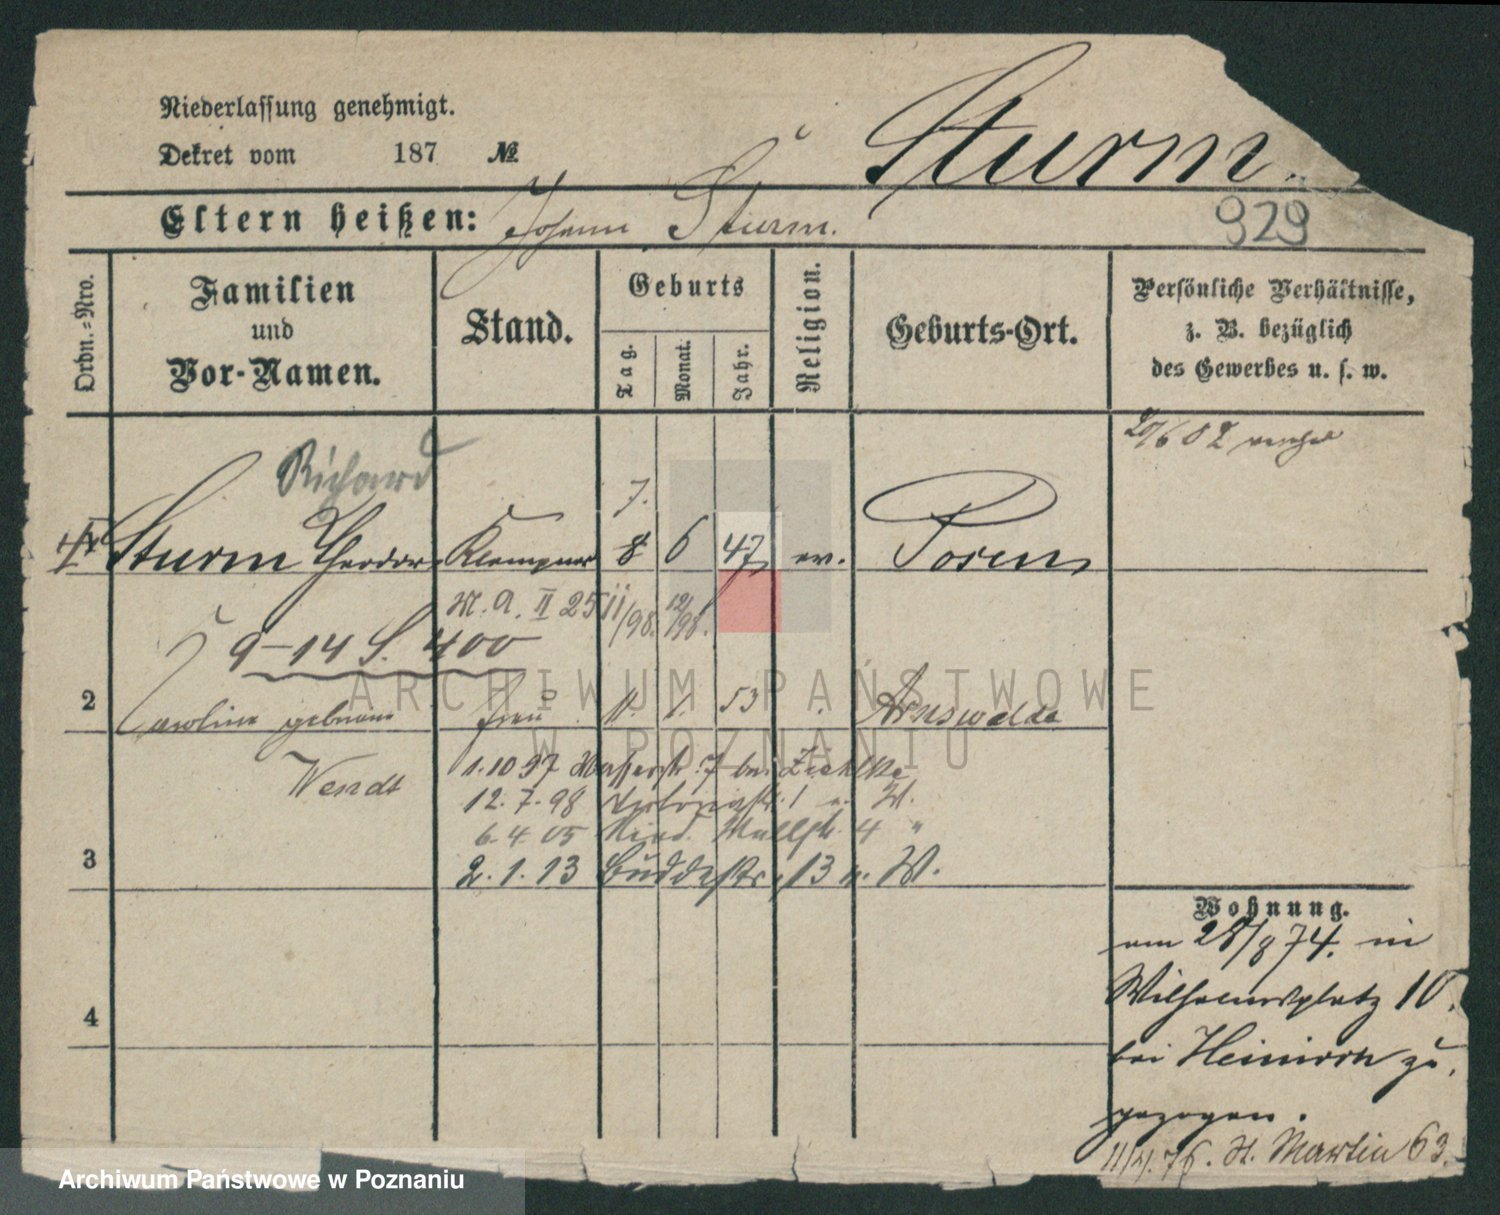 Niederlassung genehmigt.
Dekret vom 187 №
Sturm.
Eltern heißen: Johann Sturm.
929
Ordn.=Nro.
Familien
und
Vor-Namen.
Stand.
Geburts
Tag.
Monat.
Jahr.
Religion.
Geburts-Ort.
Persönliche Verhältnisse,
z. B. bezüglich
des Gewerbes u. s. w.
20/6 02
Richard
7.
Sturm Theodor Klempner 8 6 47 ev. Posen
M. A. II 25 11/98. 12/98.
9-14 S. 400
2 Caroline geborene Frau 11. 1. 53 Arnswalde
Wendt
1.10 97 Wasserstr. 7 bei Ziehlke
12.7.98 Victoriastr. 1 u. W.
6.4.05 Wallstr. 4 "
3
2.1.13 Buddestr. 13 u. W.
Wohnung.
am 28/8 74. in
Wilhelmsplatz 10.
bei Heinrich zu
gezogen.
11/4. 76. St. Martin 63.
4
ARCHIWUM PAŃSTWOWE
W POZNANIU
Archiwum Państwowe w Poznaniu